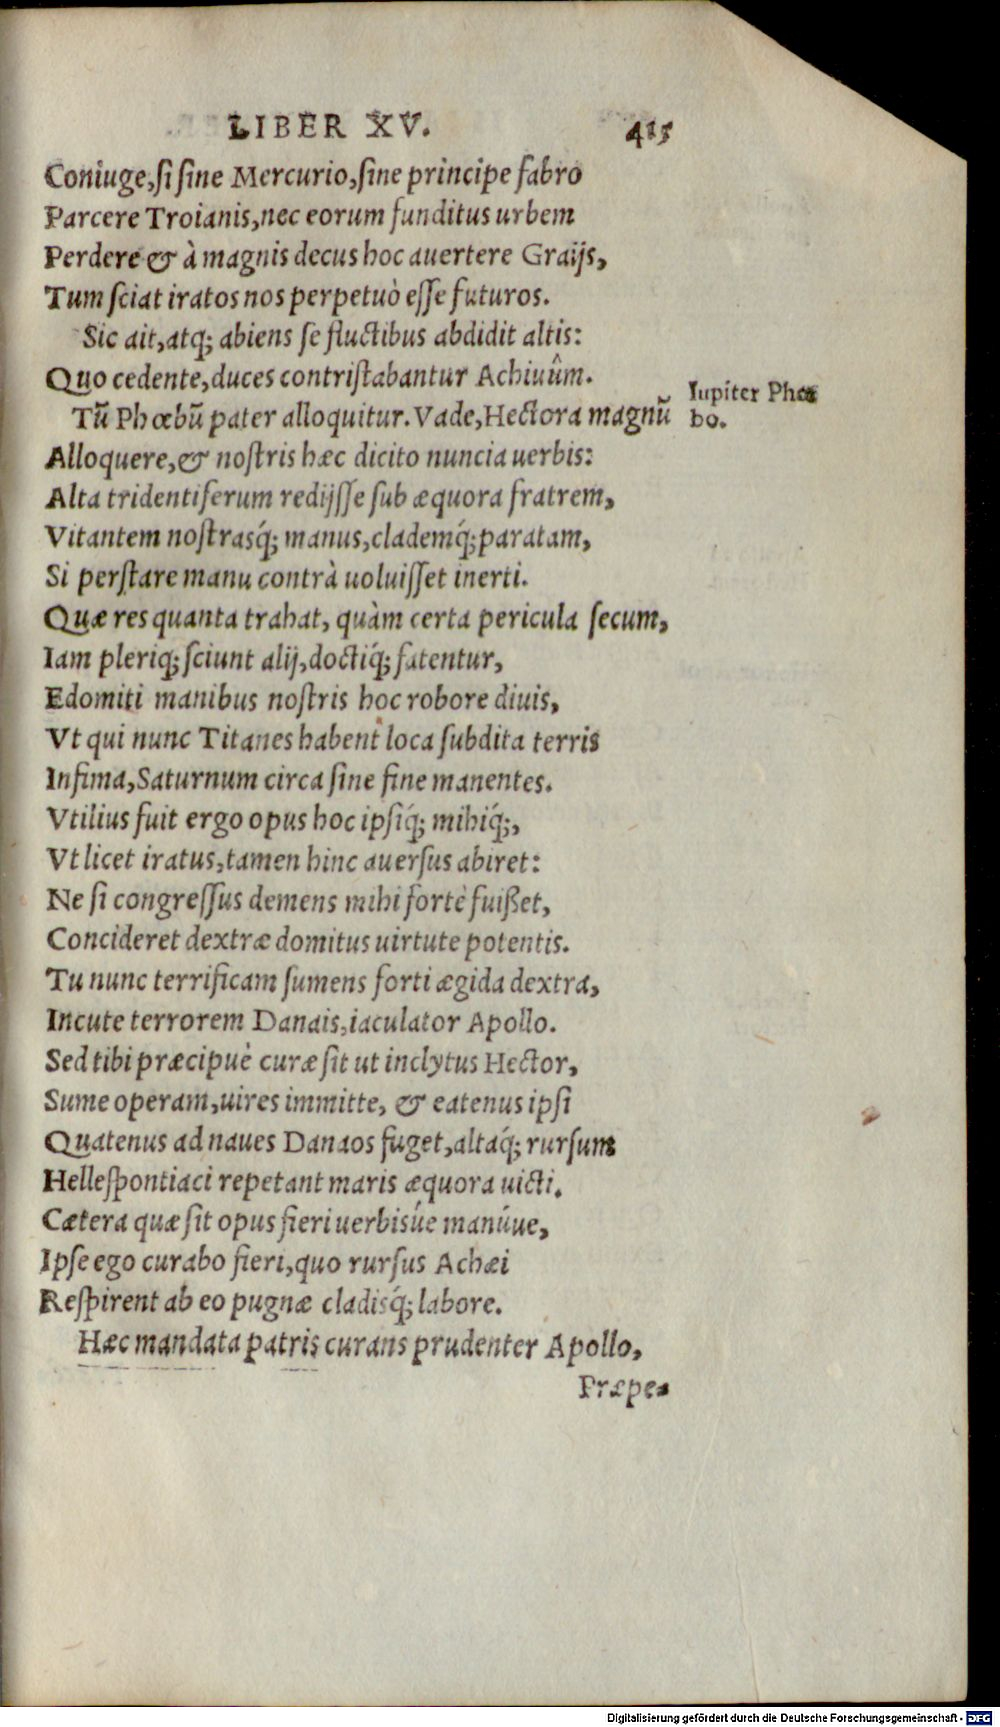 LIBER XV. 415
Coniuge,ſi ſine Mercurio,ſine principe fabro
Parcere Troianis,nec eorum funditus urbem
Perdere & à magnis decus hoc auertere Graijs,
Tum ſciat iratos nos perpetuò eſſe futuros.
Sic ait,atq; abiens ſe fluctibus abdidit altis:
Quo cedente,duces contriſtabantur Achiuûm.
Tũ Phœbũ pater alloquitur. Vade,Hectora magnũ
Iupiter Phœ-
bo.
Alloquere,& noſtris hæc dicito nuncia uerbis:
Alta tridentiferum redijſſe ſub æquora fratrem,
Vitantem noſtrasq́; manus,clademq́;paratam,
Si perſtare manu contrà uoluiſſet inerti.
Quæ res quanta trahat, quàm certa pericula ſecum,
Iam pleriq; ſciunt alij,doctiq́; fatentur,
Edomiti manibus noſtris hoc robore diuis,
Vt qui nunc Titanes habent loca ſubdita terris
Infima,Saturnum circa ſine fine manentes.
Vtilius fuit ergo opus hoc ipſiq́; mihiq́;,
Vt licet iratus,tamen hinc auerſus abiret:
Ne ſi congreſſus demens mihi fortè fuißet,
Concideret dextræ domitus uirtute potentis.
Tu nunc terrificam ſumens forti ægida dextra,
Incute terrorem Danais,iaculator Apollo.
Sed tibi præcipuè curæ ſit ut inclytus Hector,
Sume operam,uires immitte, & eatenus ipſi
Quatenus ad naues Danaos fuget,altaq́; rurſum
Helleſpontiaci repetant maris æquora uicti.
Cætera quæ ſit opus fieri uerbisúe manúue,
Ipſe ego curabo fieri,quo rurſus Achæi
Reſpirent ab eo pugnæ cladisq́; labore.
Hæc mandata patris curans prudenter Apollo,
Præpe-
Digitalisierung gefördert durch die Deutsche Forschungsgemeinschaft - DFG